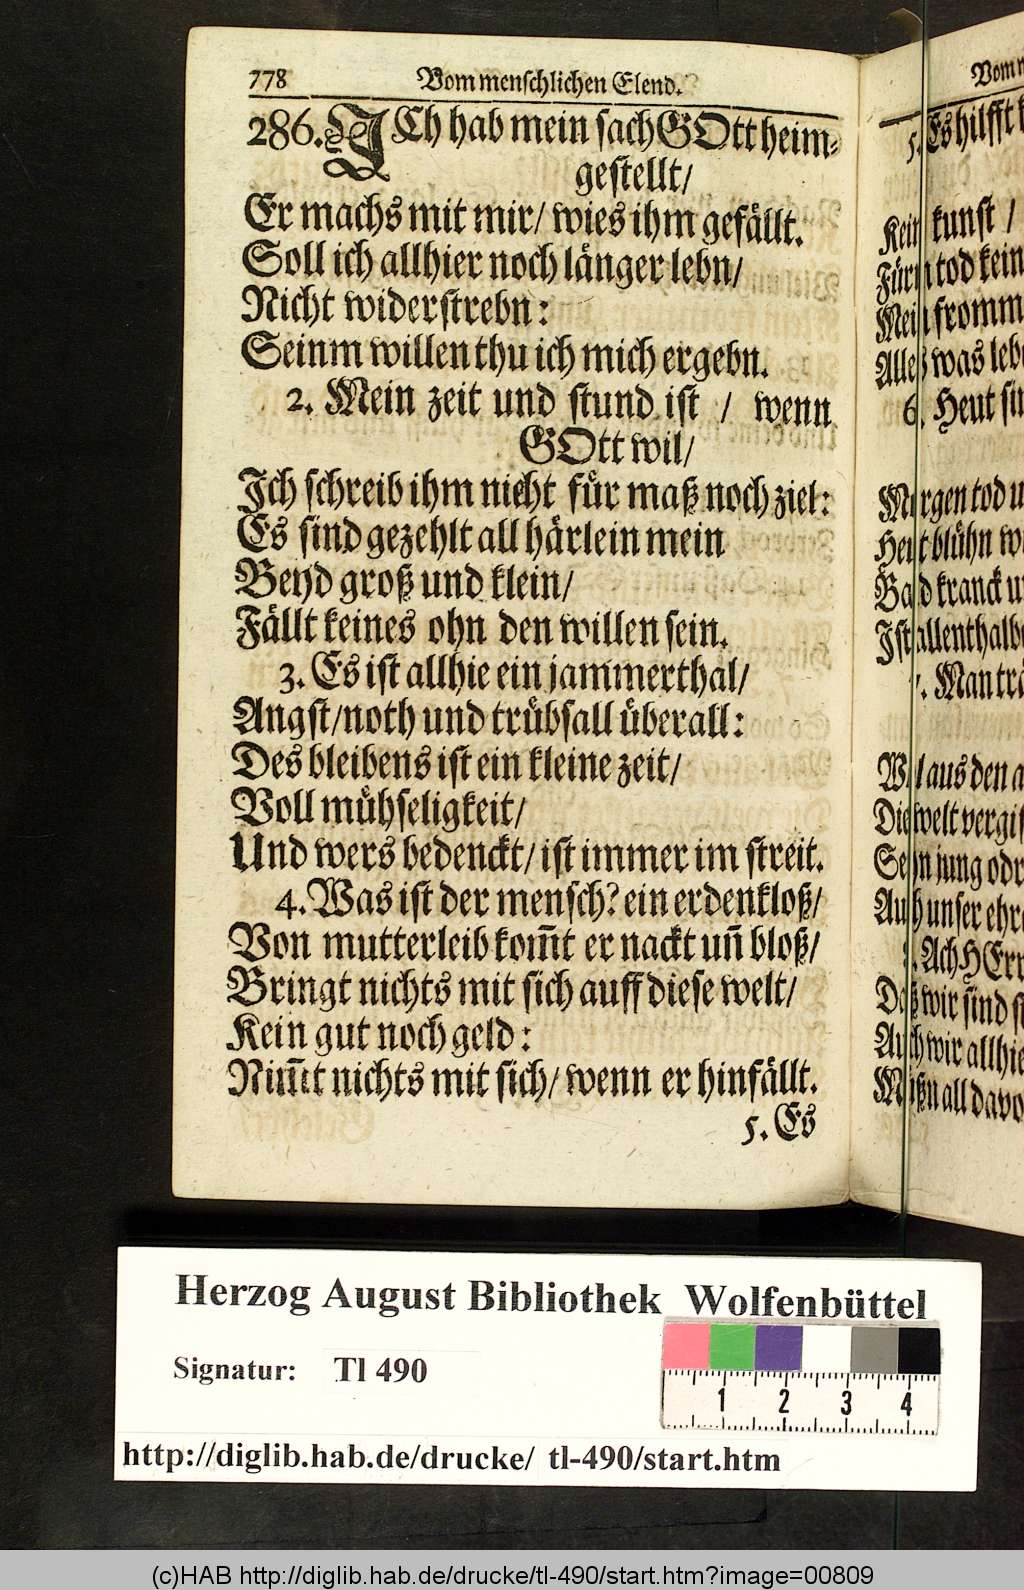 778 Vom menschlichen Elend.
286. ICh hab mein sach GOtt heim-
gestellt/
Er machs mit mir/ wies ihm gefällt.
Soll ich allhier noch länger lebn/
Nicht widerstrebn:
Seinm willen thu ich mich ergebn.
2. Mein zeit und stund ist / wenn
GOtt wil/
Ich schreib ihm nicht für maß noch ziel:
Es sind gezehlt all härlein mein
Beyd groß und klein/
Fällt keines ohn den willen sein.
3. Es ist allhie ein jammerthal/
Angst/noth und trübsall überall:
Des bleibens ist ein kleine zeit/
Voll mühseligkeit/
Und wers bedenckt/ ist immer im streit.
4. Was ist der mensch? ein erdenkloß/
Von mutterleib kom̄t er nackt uñ bloß/
Bringt nichts mit sich auff diese welt/
Kein gut noch geld:
Nim̄t nichts mit sich/ wenn er hinfällt.
5. Es
Vom
5. Es hilfft
Kein kunst /
Fürn tod kein
Mein fromm
Alles was leb
6. Heut
Morgen tod
Heut blühn
Bald kranck
Ist allenthalb
7. Man
aus den
Die welt
Seyn jung odr
Auch unser
8. Ach HErr
Daß wir sind
Auch wir allhie
Müßn all davo
Herzog August Bibliothek Wolfenbüttel
Signatur: Tl 490
1 2 3 4
http://diglib.hab.de/drucke/ tl-490/start.htm
(c)HAB http://diglib.hab.de/drucke/tl-490/start.htm?image=00809